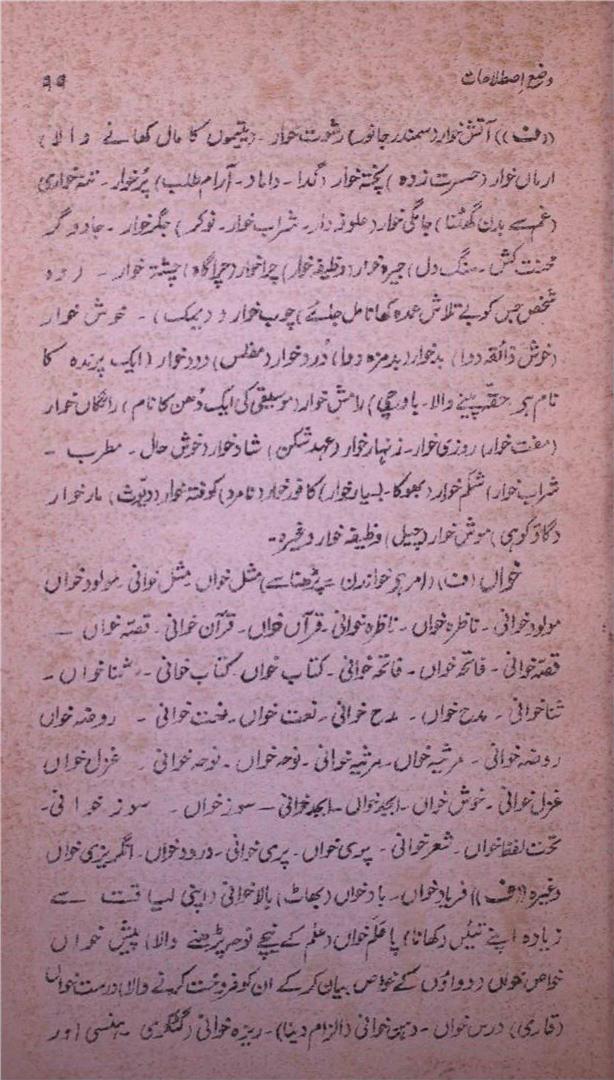 وضع اِصطلاحات ۹۹
((ف)) آتش خوار (سمندر جانور) رشوت خوار - (یتیموں کا مال کھانے والا)
ارماں خوار (حسرت زدہ) پختہ خوار (گدا - داماد - آرام طلب) پُرخوار - تنہ خواری
(غم سے بدن گھٹنا) جامگی خوار (علوفہ دار - شراب خوار - نوکر) جگر خوار - جادوگر
محنت کش - سنگ دل) جیرہ خوار (وظیفہ خوار) چراخوار (چراگاہ) چشتہ خوار - (وہ
شخص جس کو بے تلاش عمدہ کھانا مل جائے) چوب خوار (دیمک) - خوش خوار
(خوش ذائقہ دوا) بدخوار (بدمزہ دوا) دُرد خوار (مفلس) دود خوار (ایک پرندہ کا
نام ہے - حقہ پینے والا - باورچی) رامش خوار (موسیقی کی ایک دُھن کا نام) رائگاں خوار
(مفت خوار) روزی خوار - زنہار خوار (عہد شکن) شاد خوار (خوش حال - مطرب -
شراب خوار) شکم خوار (بھوکا - بسیار خوار) کافور خوار (نامرد) کوفتہ خوار (دیّوث) مارخوار
(گاؤ کوہی) موش خوار (چیل) وظیفہ خوار وغیرہ -
خواں (ف) (امر ہے خواندن = پڑھنا سے) مثل خواں مثل خوانی - مولود خواں
مولود خوانی - ناظرہ خواں - ناظرہ خوانی - قرآں خواں - قرآن خوانی - قصّہ خواں -
قصّہ خوانی - فاتحہ خواں - فاتحہ خوانی - کتاب خواں کتاب خوانی - ثنا خواں -
ثنا خوانی - مدح خواں - مدح خوانی - نعت خواں - نعت خوانی - روضہ خواں
روضہ خوانی - مرثیہ خواں - مرثیہ خوانی - نوحہ خواں - نوحہ خوانی - غزل خواں
غزل خوانی - خوش خواں - ابجد خواں - ابجد خوانی - سوز خواں - سوز خوانی -
تحت لفظ خواں - شعر خوانی - پری خواں - پری خوانی - درود خواں - انگریزی خواں
وغیرہ ((ف)) فریاد خواں - باد خواں (بھاٹ) بالا خوانی (اپنی لیاقت سے
زیادہ اپنے تئیں دکھانا) پا علم خواں (علم کے نیچے نوحہ پڑھنے والا) پیش خواں
خواص خواں (دواؤں کے خواص بیان کر کے ان کو فروخت کرنے والا) درست خواں
(قاری) درس خواں - دہن خوانی (الزام دینا) - ریزہ خوانی (گٹکری - ہنسی اور